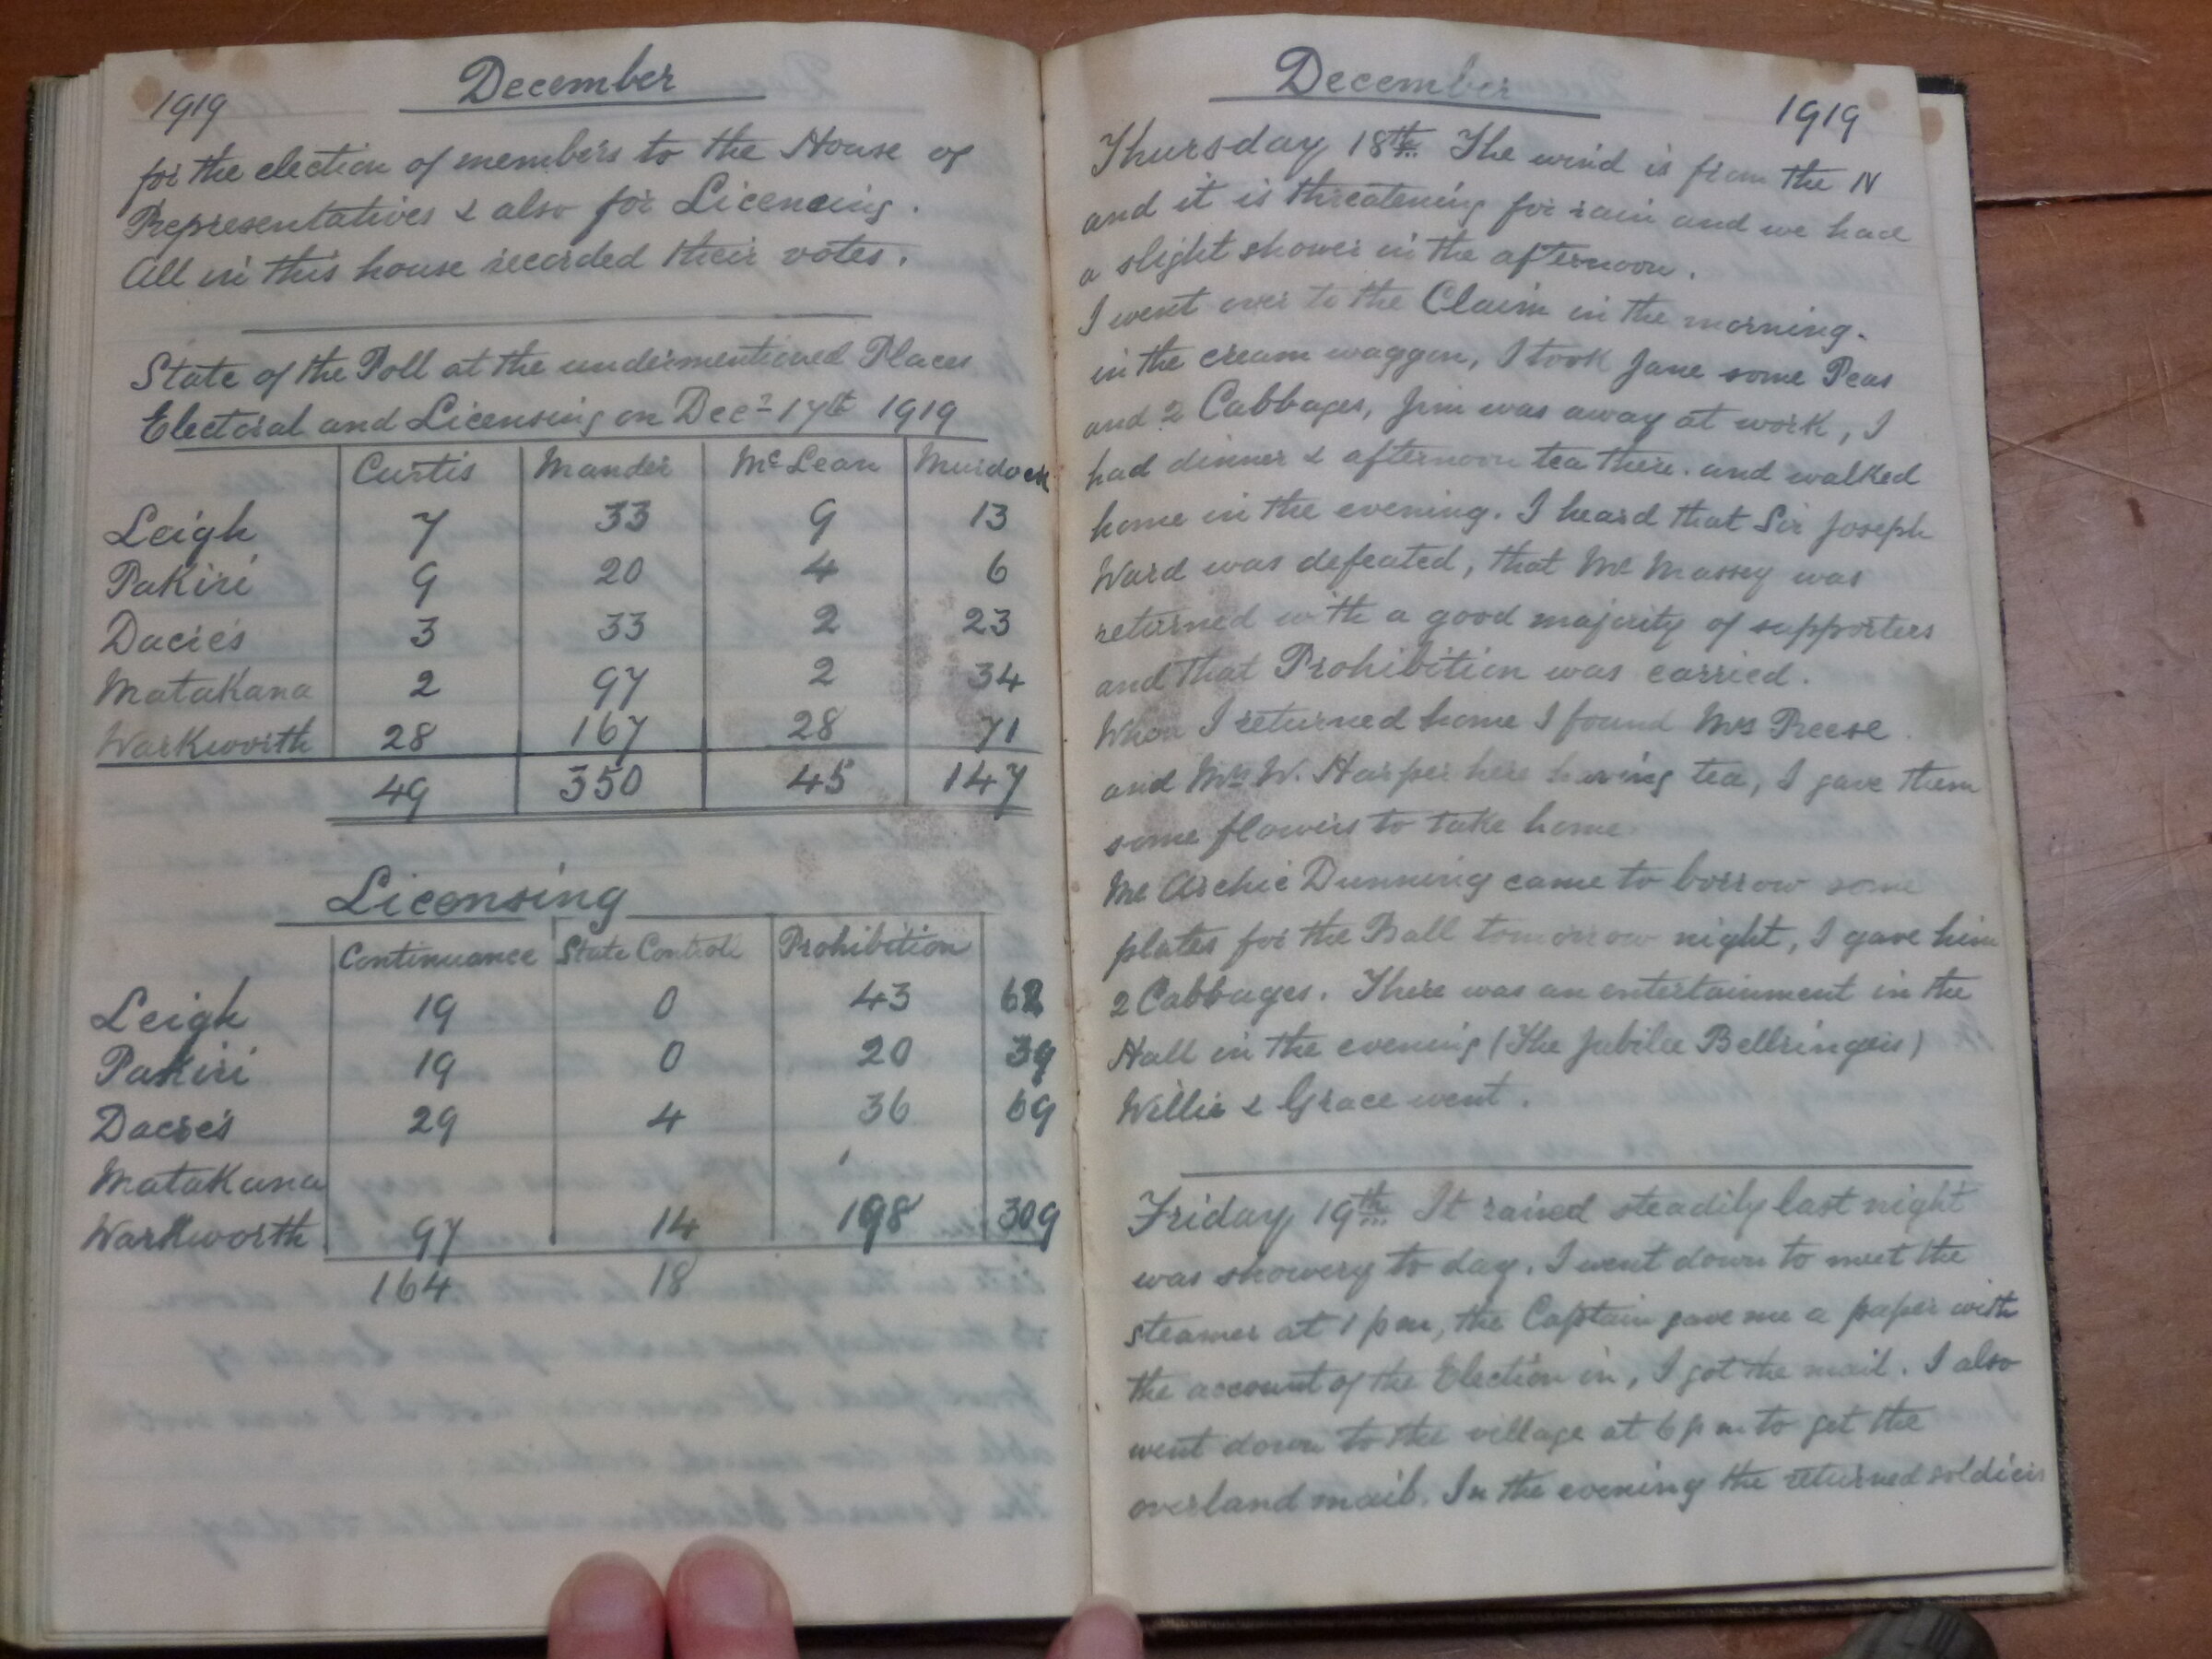 1919 December
for the election of members to the House of
Representatives & also for Licencing.
All in this house recorded their votes.
State of the Poll at the undermentioned Places
Electoral and Licensing on Decr 17th 1919
Curtis Mander McLean Murdock
Leigh 7 33 9 13
Pakiri 9 20 4 6
Dacre's 3 33 2 23
Matakana 2 97 2 34
Warkworth 28 167 28 71
49 350 45 147
Licensing
Continuance State Controle Prohibition
Leigh 19 0 43 62
Pakiri 19 0 20 39
Dacre's 29 4 36 69
Matakana
Warkworth 97 14 198 309
164 18
December 1919
Thursday 18th The wind is from the N
and it is threatening for rain and we had
a slight shower in the afternoon.
I went over to the Claim in the morning.
in the cream waggon, I took Jane some Peas
and 2 Cabbages, Jim was away at work, I
had dinner & afternoon tea there. and walked
home in the evening. I heard that Sir Joseph
Ward was defeated, that Mr Massey was
returned with a good majority of supporters
and that Prohibition was carried.
When I returned home I found Mrs Reese
and Mrs W. Harper here having tea, I gave them
some flowers to take home
Mr Archie Dunning came to borrow some
plates for the Ball tomorrow night, I gave him
2 Cabbages. There was an entertainment in the
Hall in the evening (The Jubilee Bellringers)
Willie & Grace went.
Friday 19th It rained steadily last night
was showery to day. I went down to meet the
steamer at 1 pm, the Captain gave me a paper with
the account of the Election in, I got the mail. I also
went down to the village at 6 pm to get the
overland mail. In the evening the returned soldiers